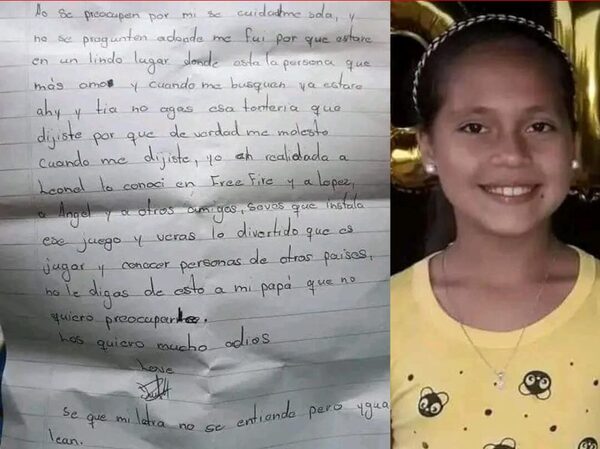 No se preocupen por mi se cuidadme sola, y
no se pregunten adonde me fui por que estare
en un lindo lugar donde esta la persona que
más amo y cuando me busquen ya estare
ahy y tia no agas esa tonteria que
dijiste por que de verdad me molesto
cuando me dijiste, yo eh realidada a
Leonel lo conoci en Free Fire y a lopez,
a Angel y a otros amigos, saves que instala
ese juego y veras lo divertido que es
jugar y conocer personas de otros paises,
no le digas de esto a mi papá que no
quiero preocuparle.
Los quiero mucho adios
Love
se que mi letra no se entiende pero ygual
lean.